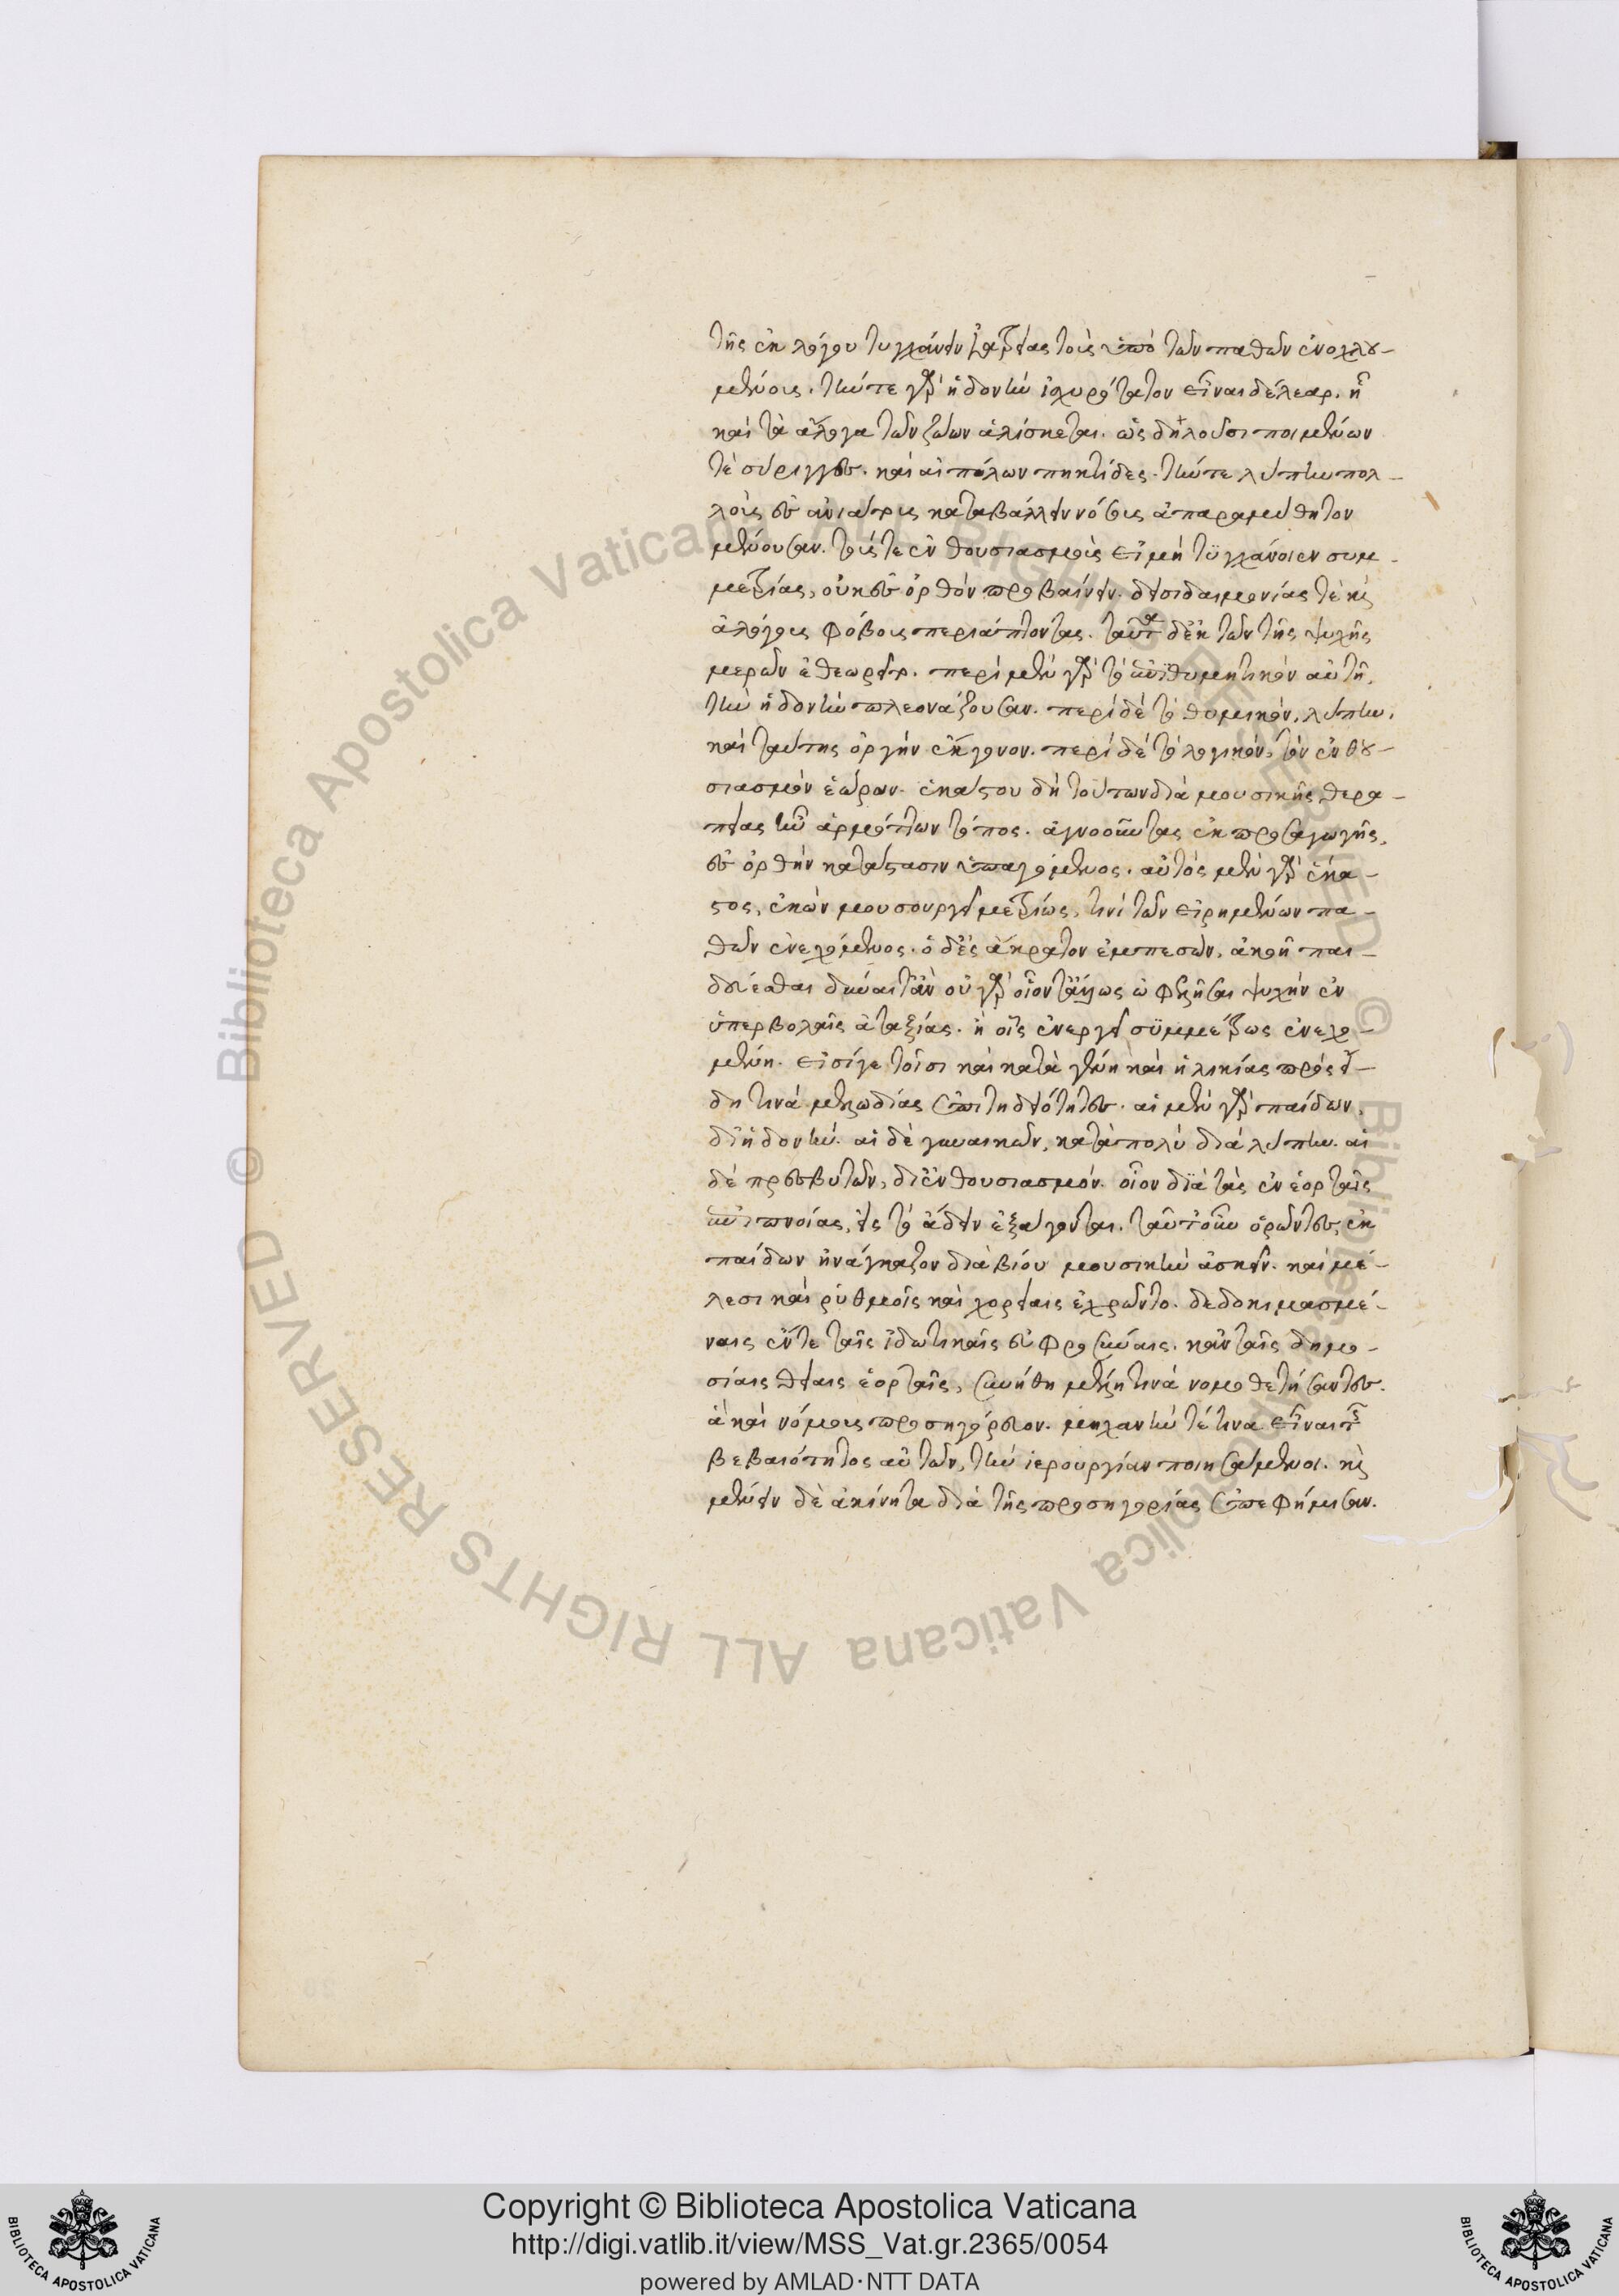 τῆς ἐκ λόγου τυγχάνειν ἰατρείας τοῖς ὑπὸ τῶν παθῶν ἐνοχλου-
μένοις. τήν τε γὰρ ἡδονὴν ἰσχυρότατον εἶναι δέλεαρ. ᾗ
καὶ τὰ ἄλογα τῶν ζώων ἁλίσκεται. ὡς δηλοῦσι ποιμένων
τὲ σύριγγες. καὶ αἰπόλων πηκτίδες. τήν τε λύπην πολ-
λοὺς ἐς ἀνιάτους καταβάλλειν νόσους ἀπαραμύθητον
μένουσαν. τούς τε ἐνθουσιασμοὺς εἰ μὴ τυγχάνοιεν συμ-
μετρίας, οὐκ ἐς ὀρθὸν προβαίνειν. δεισιδαιμονίας τὲ καὶ
ἀλόγους φόβους περιάπτοντας. ταῦτα δ' ἐκ τῶν τῆς ψυχῆς
μερῶν ἐθεώρουν. περὶ μὲν γὰρ τὸ ἐπιθυμητικὸν αὐτῆ,
τὴν ἡδονὴν πλεονάζουσαν. περὶ δὲ τὸ θυμικὸν, λύπην,
καὶ ταύτης ὀργὴν ἔκγονον. περὶ δὲ τὸ λογικὸν, τὸν ἐνθου-
σιασμὸν ἑώρων. ἑκάστου δὴ τούτων διὰ μουσικῆς θερα-
πείας ἦν ἁρμόττων τόπος. ἀγνοοῦντας ἐκ προσαγωγῆς,
ἐς ὀρθὴν κατάστασιν ὑπαγόμενος. αὐτὸς μὲν γὰρ ἕκα-
στος, ἑκὼν μουσουργεῖ μετρίως, τινὶ τῶν εἰρημένων πα-
θῶν ἐνεχόμενος. ὁ δ' ἐς ἄκρατον ἐμπεσὼν, ἀκοῇ παι-
δεύεσθαι δύναιτ' ἂν οὐ γὰρ οἷόν τ' ἄλλως ὠφελῆσαι ψυχὴν ἐν
ὑπερβολαῖς ἀταξίας. ἢ οἷς ἐνεργεῖ συμμέτρως ἐνεχο-
μένη. εἰσί γε τοῖσι καὶ κατὰ γένη καὶ ἡλικίας πρὸς εἴ-
δη τινὰ μελῳδίας ἐπιτηδειότητες. αἱ μὲν γὰρ παίδων,
δι' ἡδονήν. αἱ δὲ γυναικῶν, κατὰ πολὺ διὰ λύπην. αἱ
δὲ πρεσβυτῶν, δι' ἐνθουσιασμόν. οἷον διὰ τὰς ἐν ἑορταῖς
ἐπιπνοίας, εἰς τὸ ᾄδειν ἐξάγονται. ταῦτ' οὖν ὁρῶντες, ἐκ
παίδων ἠνάγκαζον διὰ βίου μουσικὴν ἀσκεῖν. καὶ μέ-
λεσι καὶ ῥυθμοῖς καὶ χορείαις ἐχρῶντο. δεδοκιμασμέ-
ναις ἔν τε ταῖς ἰδιωτικαῖς εὐφροσύναις. κἀν ταῖς δημο-
σίαις θείαις ἑορταῖς, συνήθη μέλη τινὰ νομοθετήσαντες.
ἃ καὶ νόμους προσηγόρευον. μηχανήν τέ τινα εἶναι τῆς
βεβαιότητος αὐτῶν, τὴν ἱερουργίαν ποιησάμενοι. καὶ
μένειν δὲ ἀκίνητα διὰ τῆς προσηγορίας ἐπεφήμισαν.
Copyright © Biblioteca Apostolica Vaticana
http://digi.vatlib.it/view/MSS_Vat.gr.2365/0054
powered by AMLAD·NTT DATA
BIBLIOTECA APOSTOLICA VATICANA
BIBLIOTECA APOSTOLICA VATICANA
© Biblioteca Apostolica Vaticana ALL RIGHTS RESERVED © Biblioteca Apostolica Vaticana ALL RIGHTS RESERVED